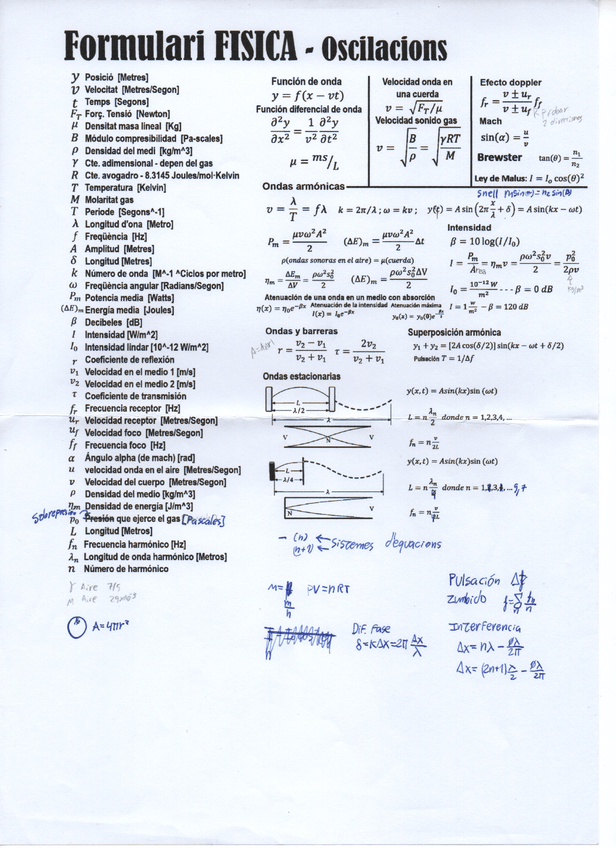 Formulari FISICA - Oscilacions
y Posició [Metres]
v Velocitat [Metres/Segon]
t Temps [Segons]
F_T Forç. Tensió [Newton]
μ Densitat masa lineal [Kg]
B Módulo compresibilidad [Pa-scales]
ρ Densidad del medi [kg/m^3]
γ Cte. adimensional - depen del gas
R Cte. avogadro - 8.3145 Joules/mol·Kelvin
T Temperatura [Kelvin]
M Molaritat gas
T Periode [Segons^-1]
λ Longitud d'ona [Metro]
f Freqüència [Hz]
A Amplitud [Metres]
δ Longitud [Metres]
k Número de onda [M^-1 ^Ciclos por metro]
ω Freqüència angular [Radians/Segon]
P_m Potencia media [Watts]
(ΔE)_m Energía media [Joules]
β Decibeles [dB]
I Intensidad [W/m^2]
I_0 Intensidad lindar [10^-12 W/m^2]
r Coeficiente de reflexión
v_1 Velocidad en el medio 1 [m/s]
v_2 Velocidad en el medio 2 [m/s]
τ Coeficiente de transmisión
f_r Frecuencia receptor [Hz]
u_r Velocidad receptor [Metres/Segon]
u_f Velocidad foco [Metres/Segon]
f_f Frecuencia foco [Hz]
α Ángulo alpha (de mach) [rad]
u velocidad onda en el aire [Metres/Segon]
v Velocidad del cuerpo [Metres/Segon]
ρ Densidad del medio [kg/m^3]
η_m Densidad de energía [J/m^3]
Sobrepresión p_0 Presión que ejerce el gas [Pascales]
L Longitud [Metros]
f_n Frecuencia harmónico [Hz]
λ_n Longitud de onda harmónico [Metros]
n Número de harmónico
γ Aire 7/5
M Aire
A=4πr²
Función de onda
y = f(x − vt)
Función diferencial de onda
∂²y/∂x² = 1/v² ∂²y/∂t²
μ = ms/L
Velocidad onda en
una cuerda
v = √F_T/μ
Velocidad sonido gas
v = √(B/ρ) = √(γRT/M)
Efecto doppler
f_r = (v ± u_r)/(v ± u_f) f_f
Mach
sin(α) = u/v
Brewster tan(θ) = n_1/n_2
Ley de Malus: I = I_0 cos(θ)²
Snell n_1 sin(θ) = n_2 sin(θ)
Ondas armónicas
v = λ/T = fλ k = 2π/λ ; ω = kv ; y(t) = A sin(2π x/λ + δ) = A sin(kx − ωt)
P_m = μvω²A²/2 (ΔE)_m = μvω²A²/2 Δt
ρ(ondas sonoras en el aire) = μ(cuerda)
η_m = ΔE_m/ΔV = ρω²s_0²/2 (ΔE)_m = ρω²s_0²ΔV/2
Atenuación de una onda en un medio con absorción
η(x) = η_0e^-βx
Atenuación de la intensidad
I(x) = I_0e^-βx
Atenuación máxima
y_0(x) = y_0(0)e^-β/2 x
Intensidad
β = 10 log(I/I_0)
I = P_m/Area = η_m v = ρω²s_0²v/2 = p_0²/2ρv
I_0 = 10^-12 W/m² - - - β = 0 dB
I = 1 W/m² - - β = 120 dB
Ondas y barreras
r = (v_2 − v_1)/(v_2 + v_1) τ = 2v_2/(v_2 + v_1)
Superposición armónica
y_1 + y_2 = [2A cos(δ/2)] sin(kx − ωt + δ/2)
Pulsación T = 1/Δf
Ondas estacionarias
L
λ/2
λ
V N V
y(x,t) = Asin(kx)sin (ωt)
L = n λ_n/2 donde n = 1,2,3,4, ...
f_n = n v/2L
L
λ/4
λ
N V
y(x,t) = Asin(kx)sin (ωt)
L = n λ_n/4 donde n = 1,
f_n = n v/4L
- (n)
(n+1) ← Sistemes d'equacions
M = m/n PV=nRT
Dif. Fase
δ=kΔx=2π Δx/λ
Pulsación Δf
Zumbido
Interferencia
Δx = nλ − ∅λ/2π
Δx = (2n+1) λ/2 − ∅λ/2π